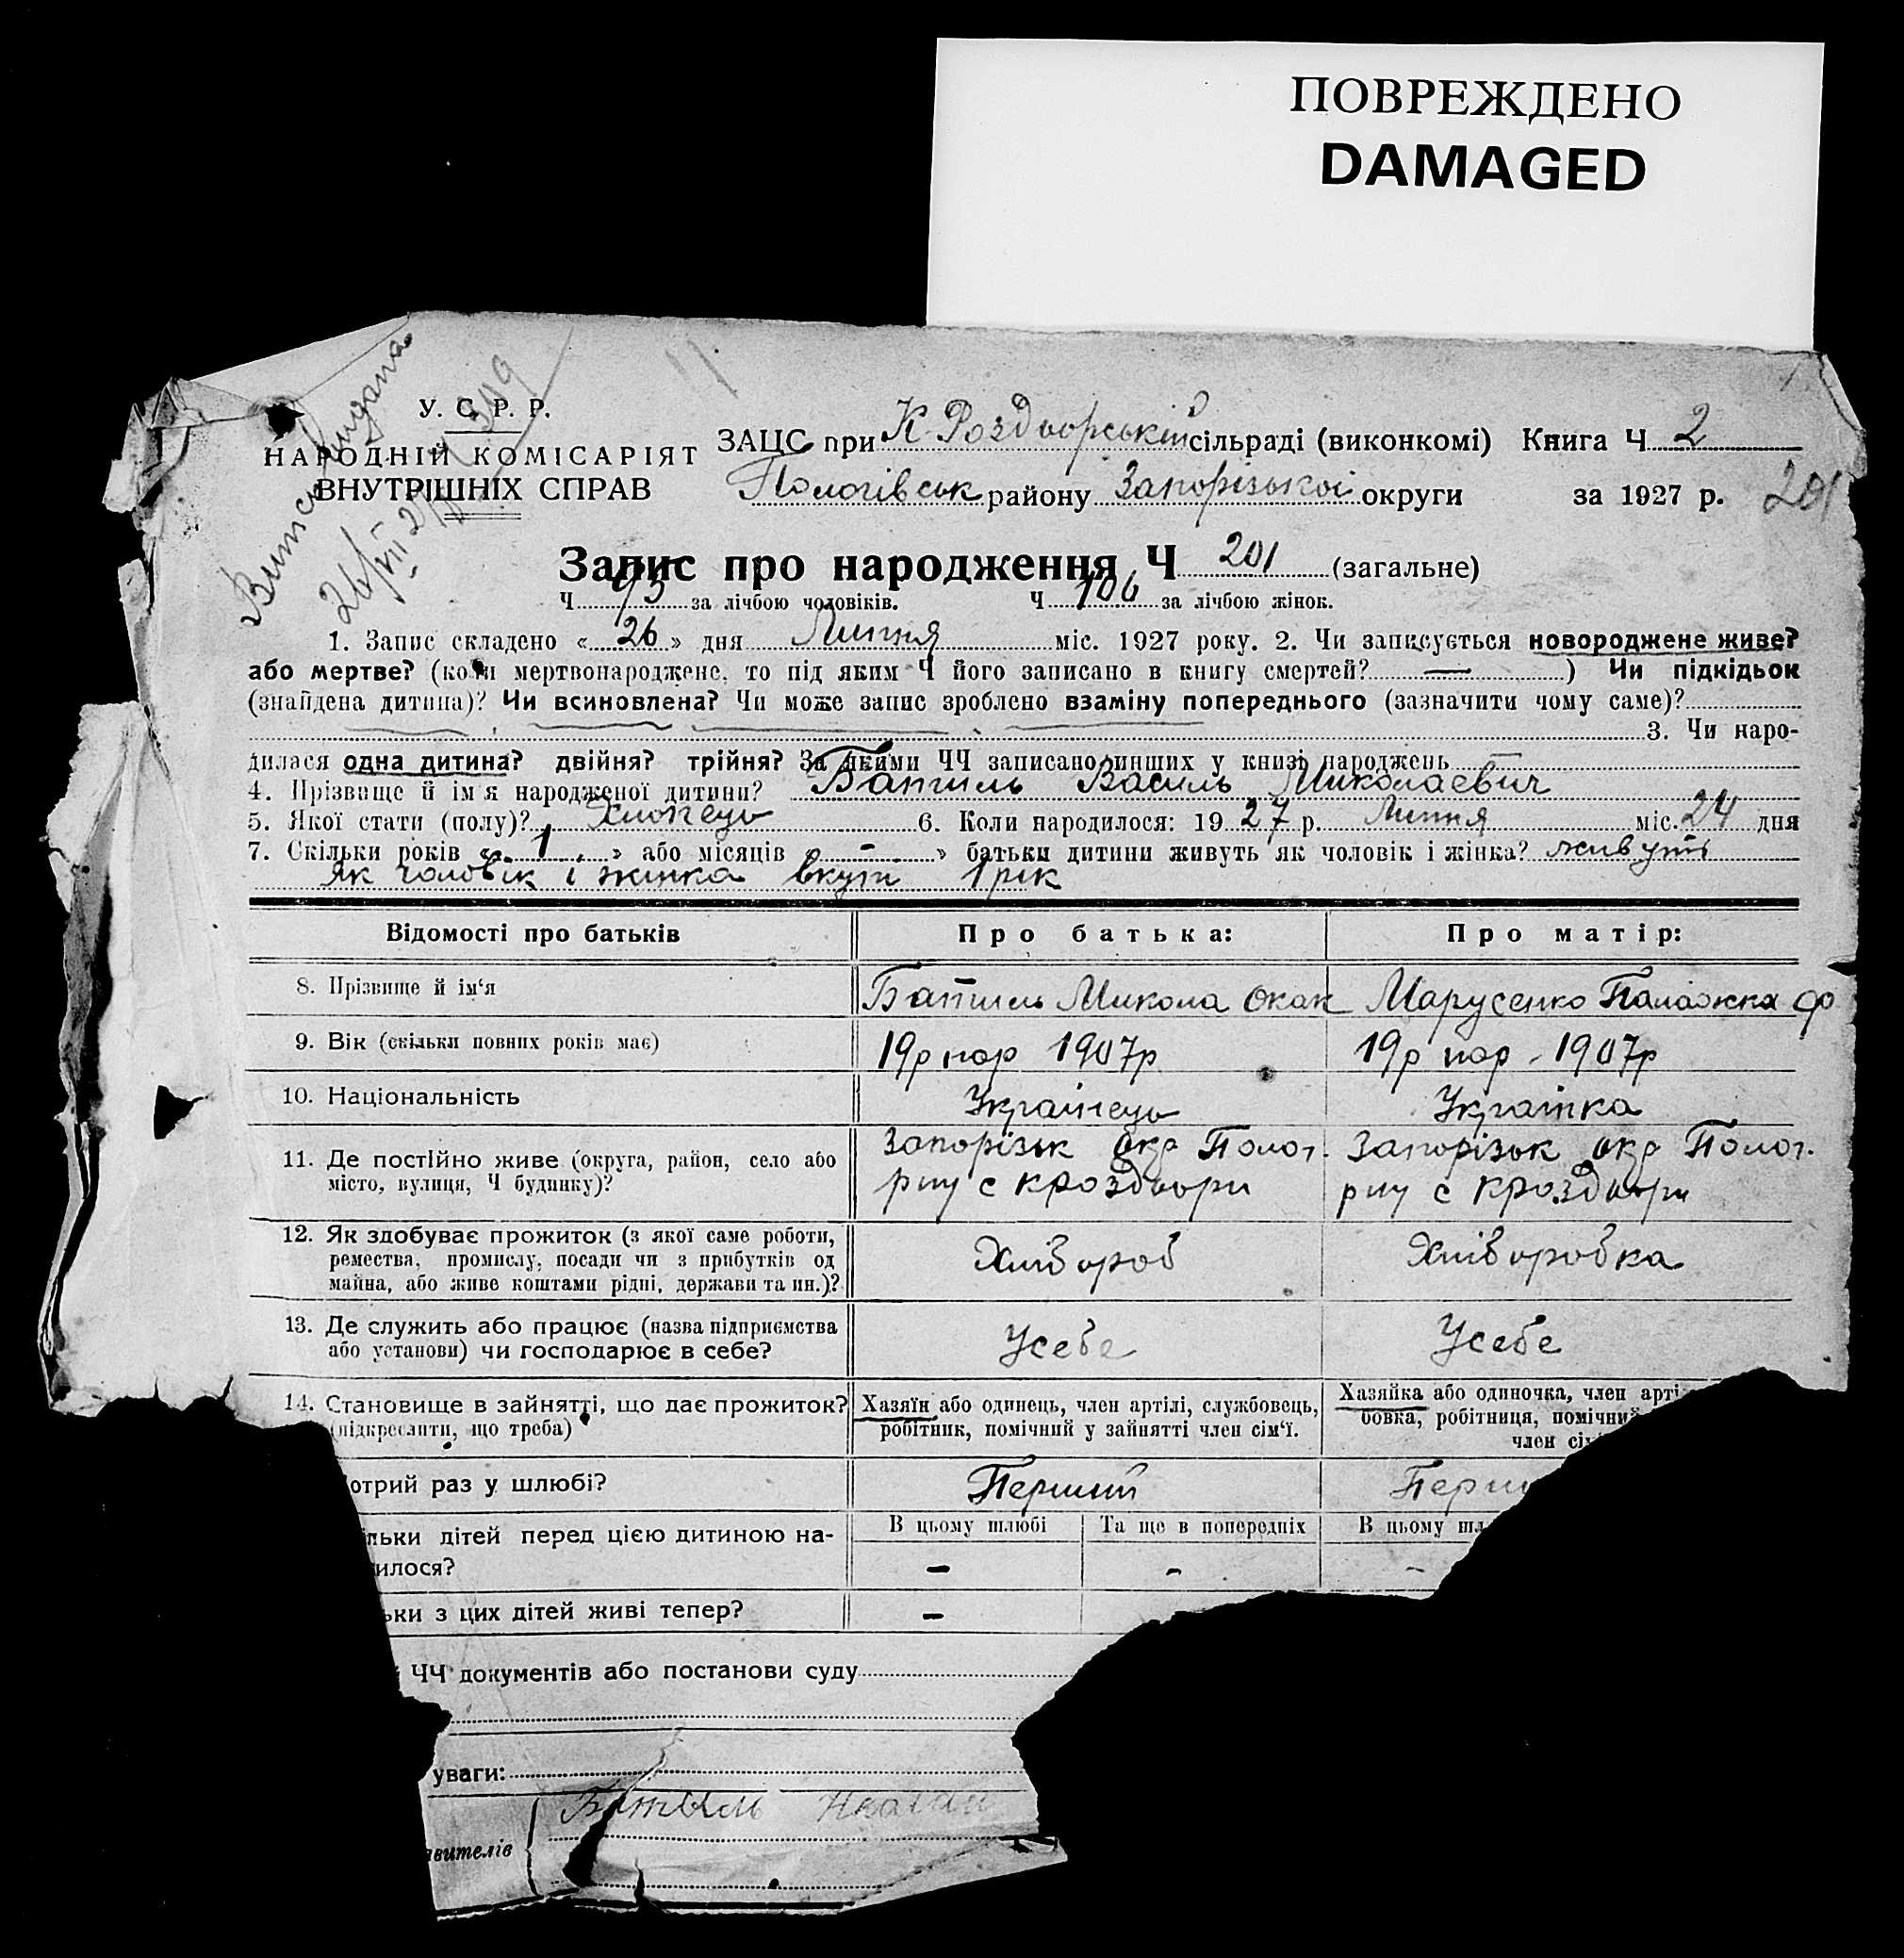 ПОВРЕЖДЕНО
DAMAGED
У. С. Р. Р.
НАРОДНІЙ КОМІСАРІЯТ
ВНУТРІШНІХ СПРАВ
26/VII 27
ЗАЦС при К-Роздворській сільраді (виконкомі) Книга Ч 2
Пологівськ району Запорізької округи за 1927 р. 201
Запис про народження Ч 201 (загальне)
Ч 95 за лічбою чоловіків. Ч 106 за лічбою жінок.
1. Запис складено « 26 » дня Липня міс. 1927 року. 2. Чи записується новороджене живе?
або мертве? (коли мертвонароджене, то під яким Ч його записано в книгу смертей? — ) Чи підкідьок
(знайдена дитина)? Чи всиновлена? Чи може запис зроблено взаміну попереднього (зазначити чому саме)?
3. Чи наро-
дилася одна дитина? двійня? трійня? За якими ЧЧ записано инших у книзі народжень —
4. Прізвище й ім'я народженої дитини? Батиль Василь Миколаевич
5. Якої стати (полу)? Хлопець 6. Коли народилося: 1927 р. Липня міс. 24 дня
7. Скільки років « 1 » або місяців « - » батьки дитини живуть як чоловік і жінка? живуть
Як чоловік і жінка вкупі 1 рік
Відомості про батьків Про батька: Про матір:
8. Прізвище й ім'я Батиль Микола Марусенко Палажка Ф
9. Вік (скільки повних років має) 19р нар 1907р 19р нар - 1907р
10. Національність Українець Українка
11. Де постійно живе (округа, район, село або Запорізьк окр Полог. Запорізьк окр Полог.
місто, вулиця, Ч будинку)? рну с Кроздори рну с Кроздори
12. Як здобуває прожиток (з якої саме роботи,
ремества, промислу, посади чи з прибутків од Хлібороб Хліборобка
майна, або живе коштами рідні, держави та ин.)?
13. Де служить або працює (назва підприємства Усебе Усебе
або установи) чи господарює в себе?
14. Становище в зайнятті, що дає прожиток? Хазяїн або одинець, член артілі, службовець, Хазяйка або одиночка, член арті
(підкреслити, що треба) робітник, помічний у зайнятті член сім'ї. бовка, робітниця, помічни
член сім
отрий раз у шлюбі? Перший Перш
льки дітей перед цією дитиною на- В цьому шлюбі Та ще в попередніх В цьому шл
илося? - - -
ьки з цих дітей живі тепер? -
ЧЧ документів або постанови суду
уваги:
Батыль
вителів